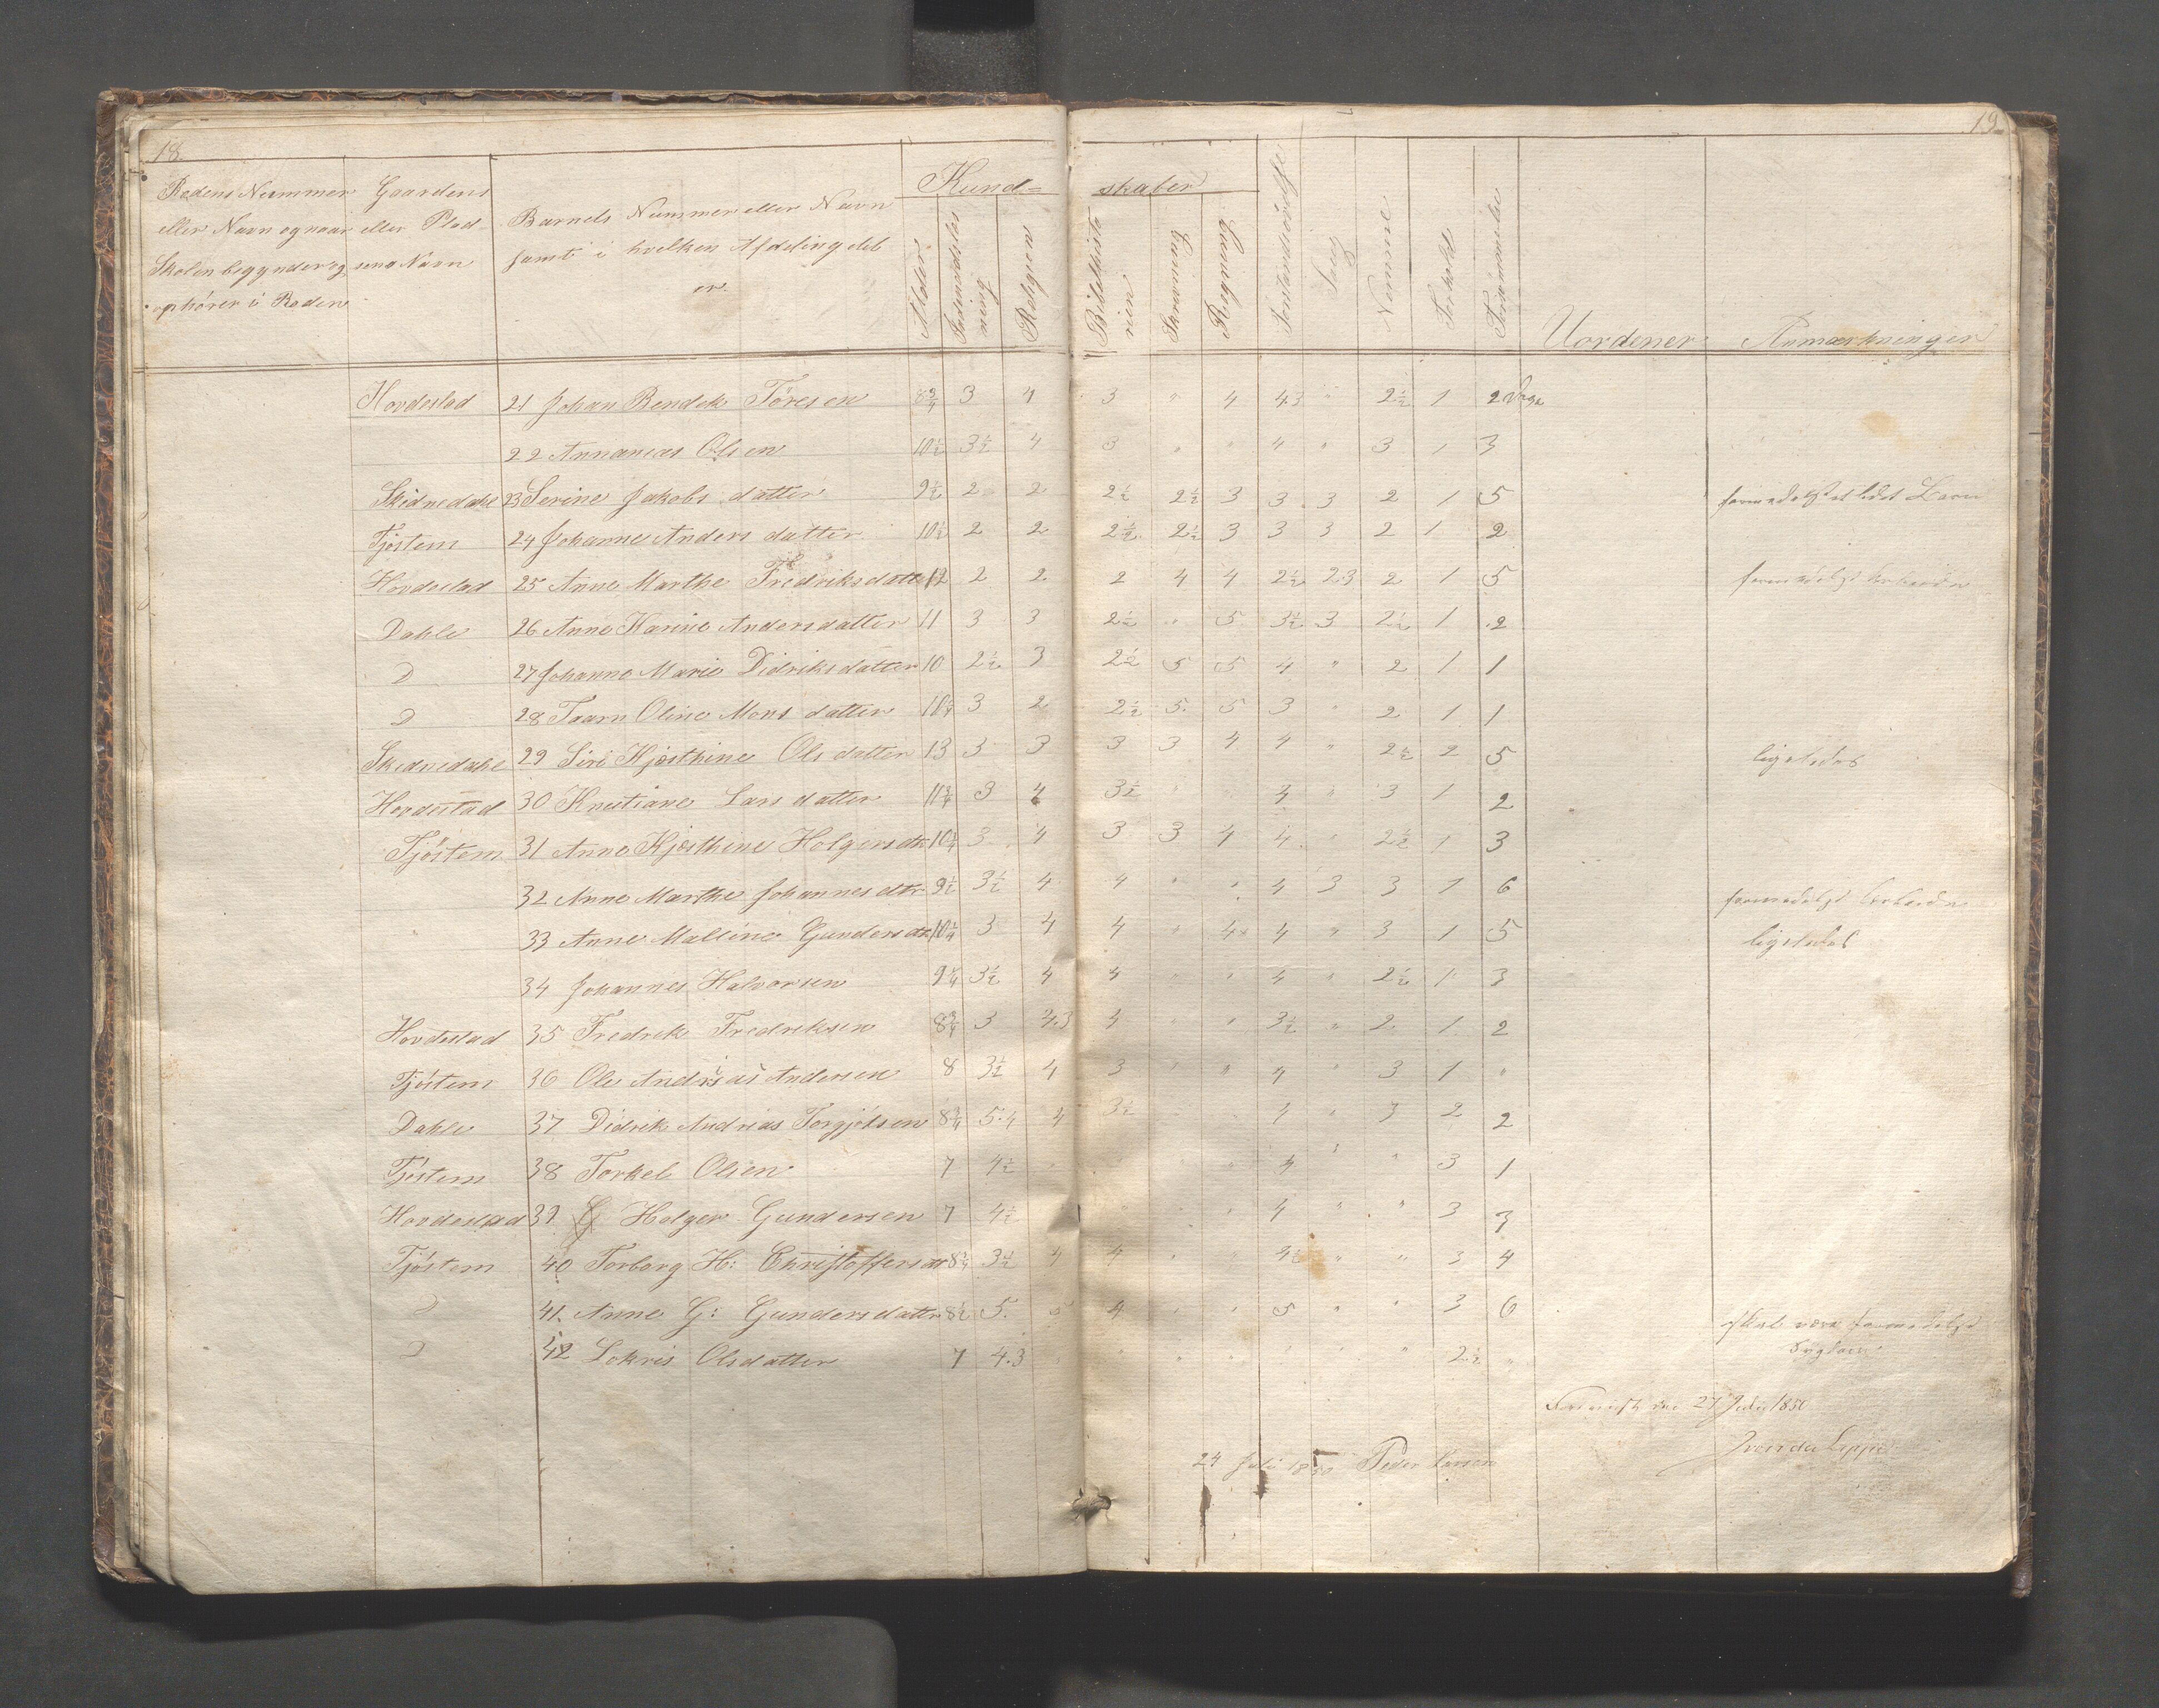 18.
19.
Rodens Nummer eller Navn og naar Skolen begynder og ophører i Roden
Gaardens eller Pladsens Navn
Barnets Nummer eller Navn samt i hvilken Afdeling det er
Kundskaber
Alder
Religion
Bibelhistorien
Skrivning
Regning
Sang
Nemme
Forhold
Forsømmelse
Uordener
Anmærkninger
Hovdestad 21 Johan Bendek Töresen 8 3/4 3 4 3 " 4 4.3 " 2 1/2 1 2 Dage
22 Annanias Olsen 10 1/2 3 1/2 4 3 " " 4 " 3 1 3
Skidnedahl 23 Serine Jakobs datter 9 1/2 2 2 2 1/2 2 1/2 3 3 3 2 1 5
Tjöstem 24 Johanne Anders datter 10 1/2 2 2 2 1/2 2 1/2 3 3 3 2 1 2
Hovdestad 25 Anne Marthe Fredriksdatter 12 2 2 2 4 4 2 1/2 2.3 2 1 5
Dahle 26 Anne Karine Andersdatter 11 3 3 2 1/2 " 5 3 1/2 3 2 1/2 1 2
D 27 Johanne Marie Didriksdatter 10 2 1/2 3 2 1/2 5 5 4 " 2 1 1
D 28 Taarn Oline Mons datter 10 1/4 3 2 2 1/2 5 5 3 " 2 1 1
Skidnedahl 29 Siri Kjæsthine Ols datter 13 3 3 3 3 4 4 " 2 1/2 2 5 ligeledes
Hovdestad 30 Kristiane Lars datter 11 3/4 3 4 3 1/2 " " 4 " 3 1 2
Tjöstem 31 Anne Kjæsthine Holgersdtr 10 1/4 3 4 3 3 4 4 " 2 1/2 1 3
32 Anne Marthe Johannesdtr 9 1/2 3 1/2 4 4 " " 4 3 3 1 6
33 Anne Malline Gundersdtr 10 1/4 3 4 4 " 4 4 " 3 1 5 ligeledes
34 Johannes Halvorsen 9 1/4 3 1/2 4 4 " " 4 " 2 1/2 1 3
Hovdestad 35 Fredrek Fredreksen 8 3/4 3 4.3 4 " " 3 1/2 " 2 1 2
Tjöstem 36 Ole Andreas Andersen 8 3 1/2 4 3 " " 4 " 3 1 "
Dahle 37 Didrek Andreas Torgjelsen 8 3/4 5.4 4 3 1/2 4 " 3 2 2
Tjöstem 38 Torkel Olsen 7 4 1/2 4 " " 3 1
Hovdestad 39 Holger Gundersen 7 4 1/2 " 4 " " 3 3
Tjöstem 40 Torborg H: Christoffersdtr 8 3/4 3 1/2 4 4 " " 4 1/2 " " 3 4
D 41. Anne G: Gundersdatter 8 1/2 5. 5 4 " " 5 " " 3 6
D 42 Lokris Olsdatter 7 4.3 " 2 1/2 "
27 Juli 1850
24 Juli 1850 Peder Larsen